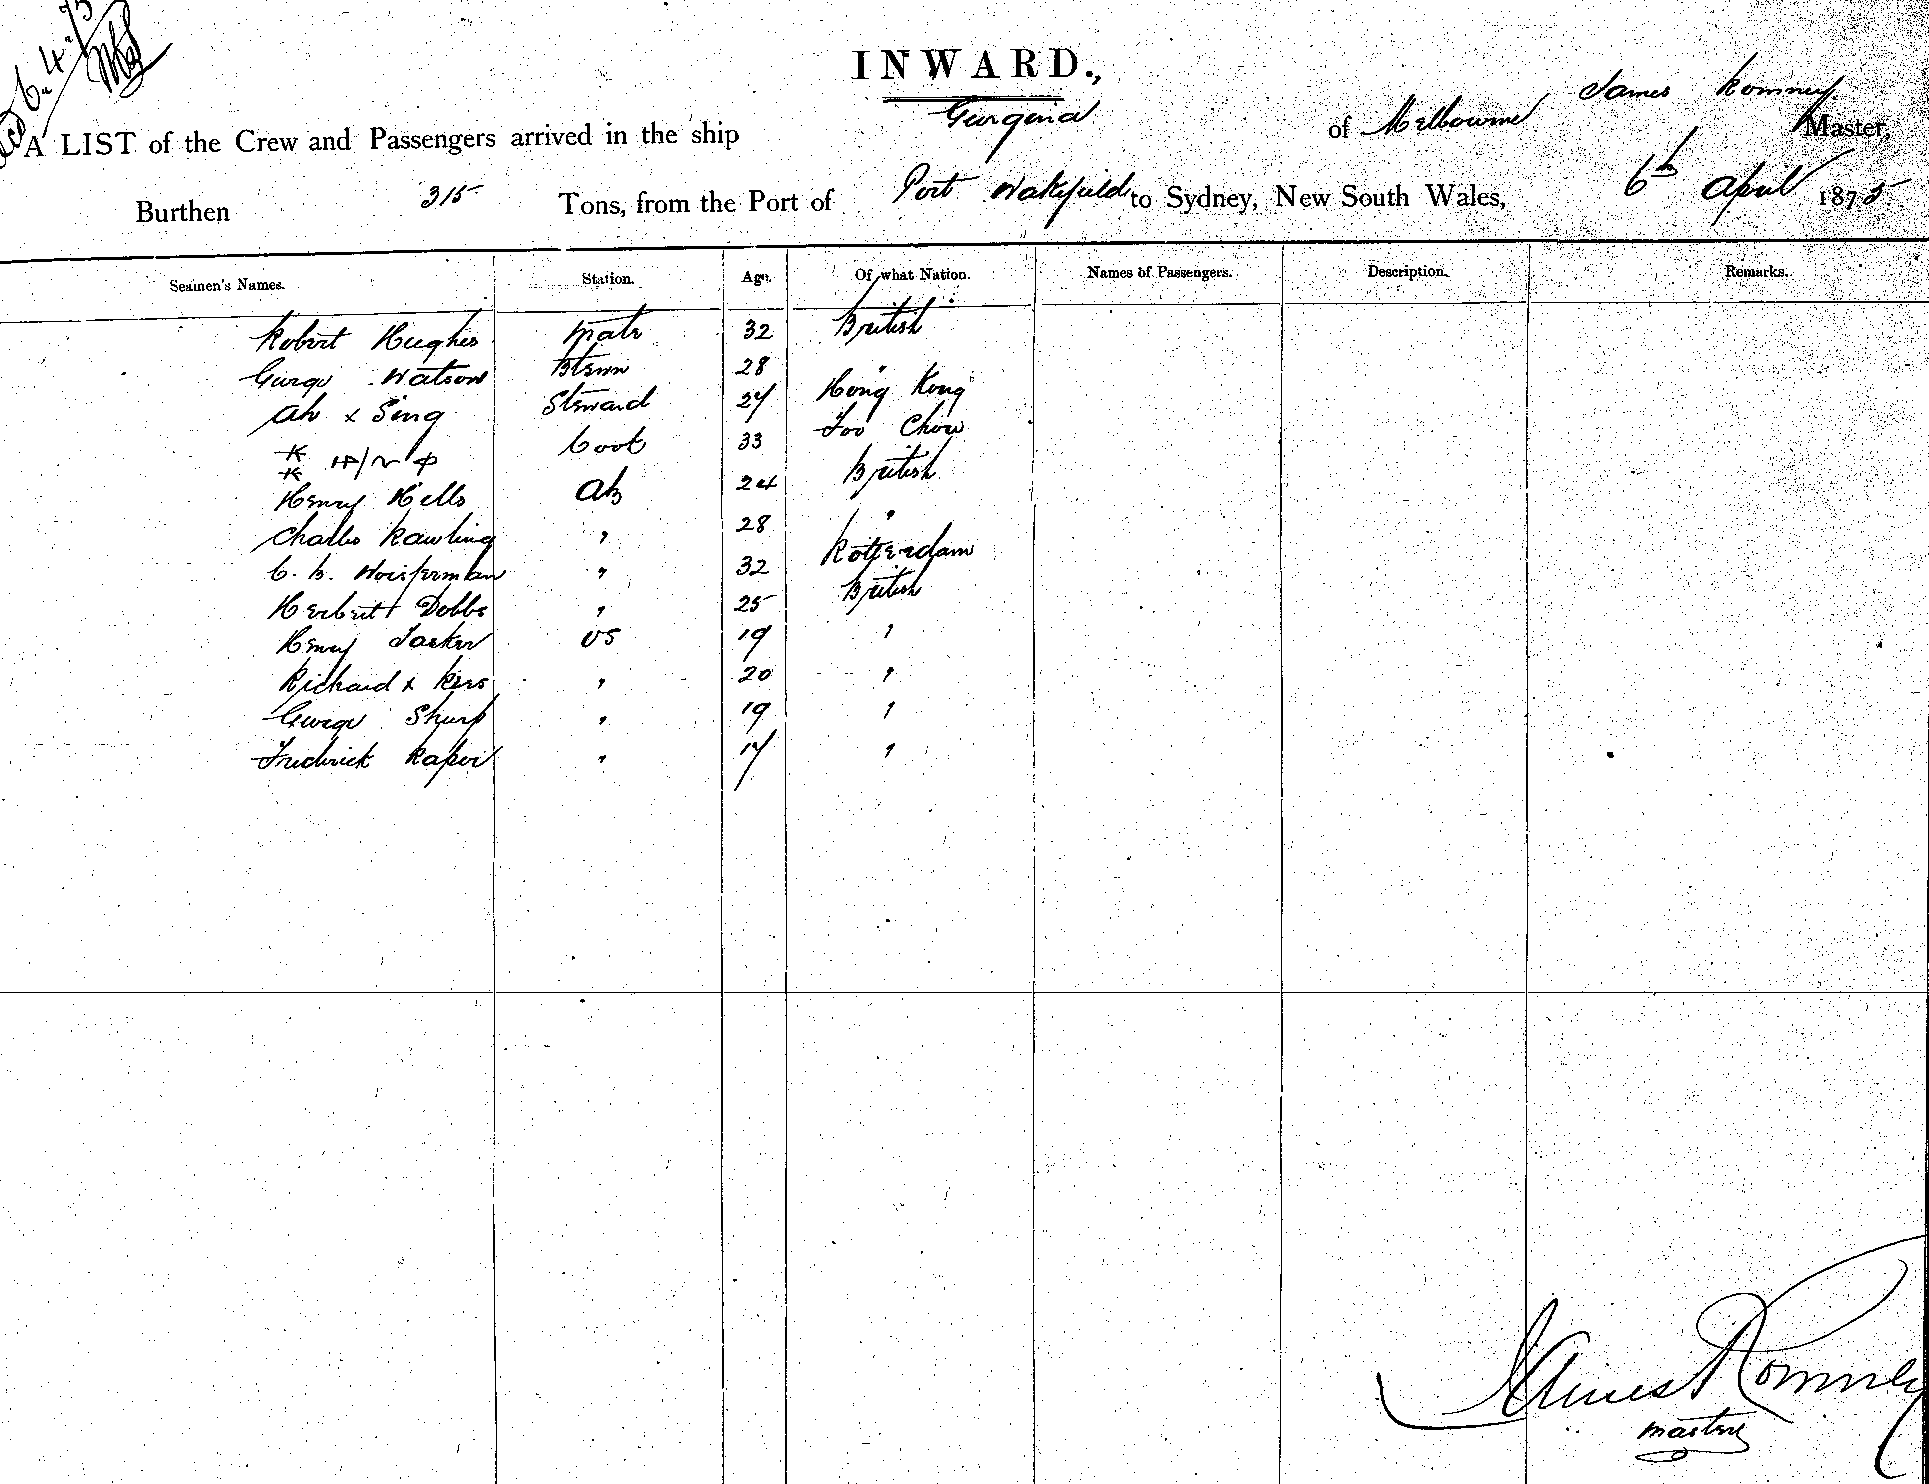 INWARD.,
A LIST of the Crew and Passengers arrived in the ship of Melbourne James Romney Master,
Burthen 315 Tons, from the Port of Port Wakefield to Sydney, New South Wales, 6th April 1875
Seamen's Names. Station. Age. Of what Nation. Names of Passengers. Description. Remarks.
Robert Hughes Mate 32 British
George Watson 28 "
Ah x Sing Steward 27 Hong Kong
Cook 33 Foo Chow
Henry Hells AB 24 British
Charles Rawling " 28 "
C. B. " 32 Rotterdam
Herbert Dobbs " 25 British
Henry OS 19 "
Richard x " 20 "
George Sharp " 19 "
Frederick Raper " 17 "
James Romney
master